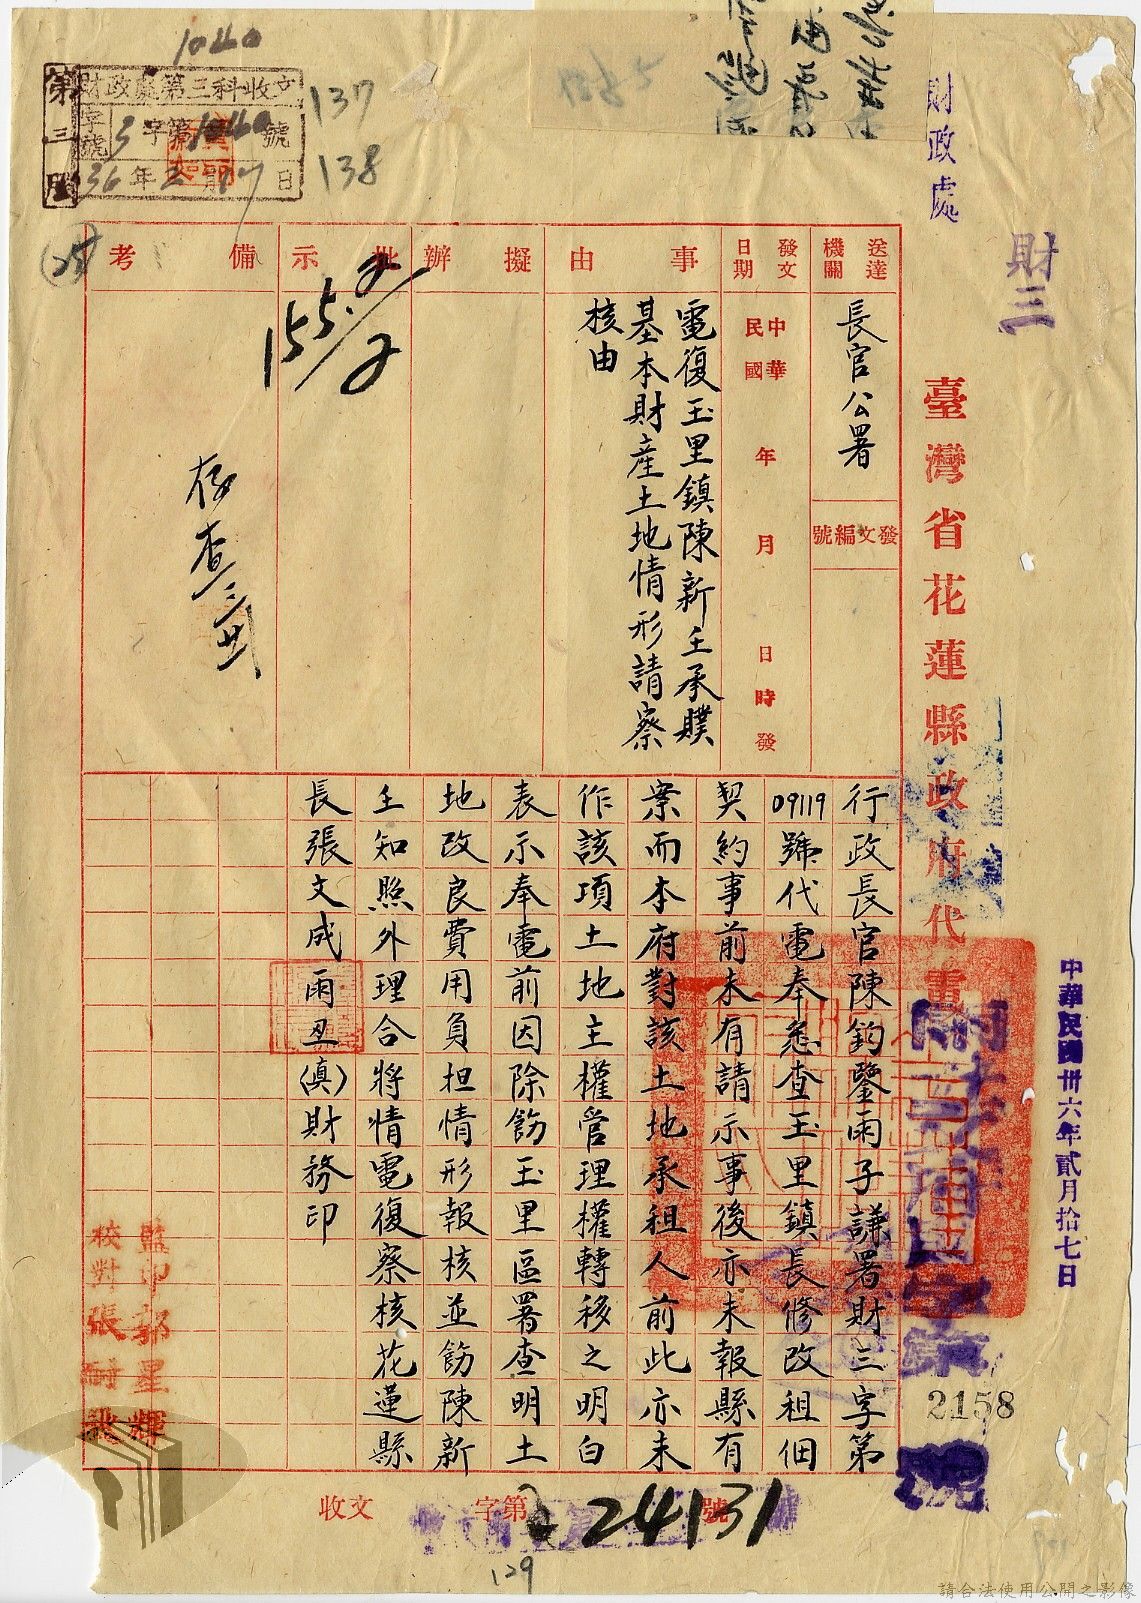 財政處
財三
臺灣省花蓮縣政府代電
中華民國卅六年貳月拾七日
字第
2158
號
1040
第三股
財政處第三科收文
字號 3字第1040號
36年2月17日
137
138
送達機關
長官公署
發文編號
發文日期
中華民國 年 月 日 時發
事由
電復玉里鎮陳新壬承贌
基本財產土地情形請察
核由
擬辦
批示
備考
存查
行政長官陳鈞鑒雨子謙署財三字第
09119號代電奉悉查玉里鎮長修改租佃
契約事前未有請示事後亦未報縣有
案而本府對該土地承租人前此亦未
作該項土地主權管理權轉移之明白
表示奉電前因除飭玉里區署查明土
地改良費用負担情形報核並飭陳新
壬知照外理合將情電復察核花蓮縣
長張文成雨丑(真)財務印
監印郭星輝
校對張
收文 字第 24131 號
129
請合法使用公開之影像